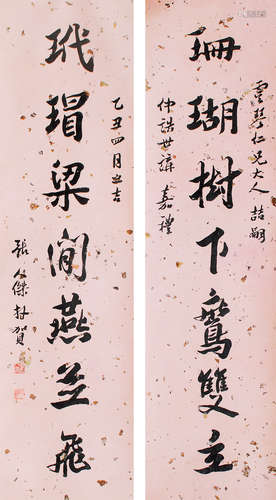 珊瑚樹下鸞雙立
雲仁兄大人喆嗣
仲誥世講嘉禮
玳瑁梁間燕並飛
乙丑四月之吉
張人傑拜賀